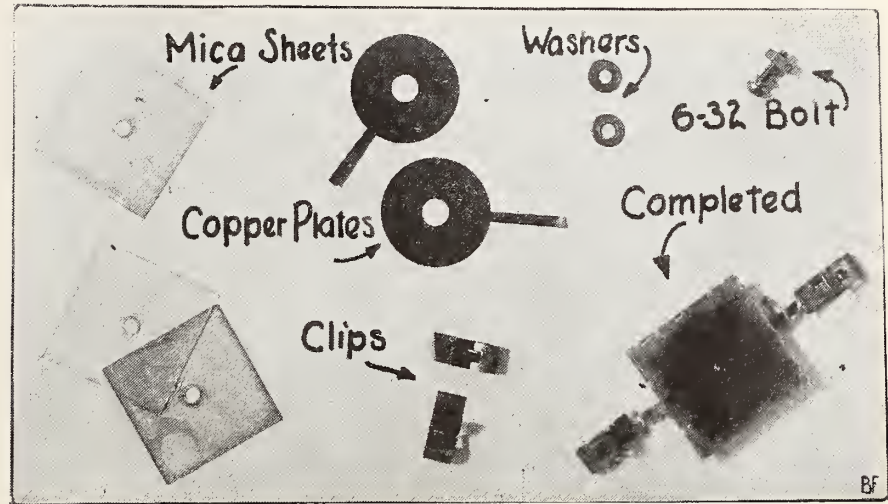 Mica Sheets
Washers
6-32 Bolt
Copper Plates
Completed
Clips
BF